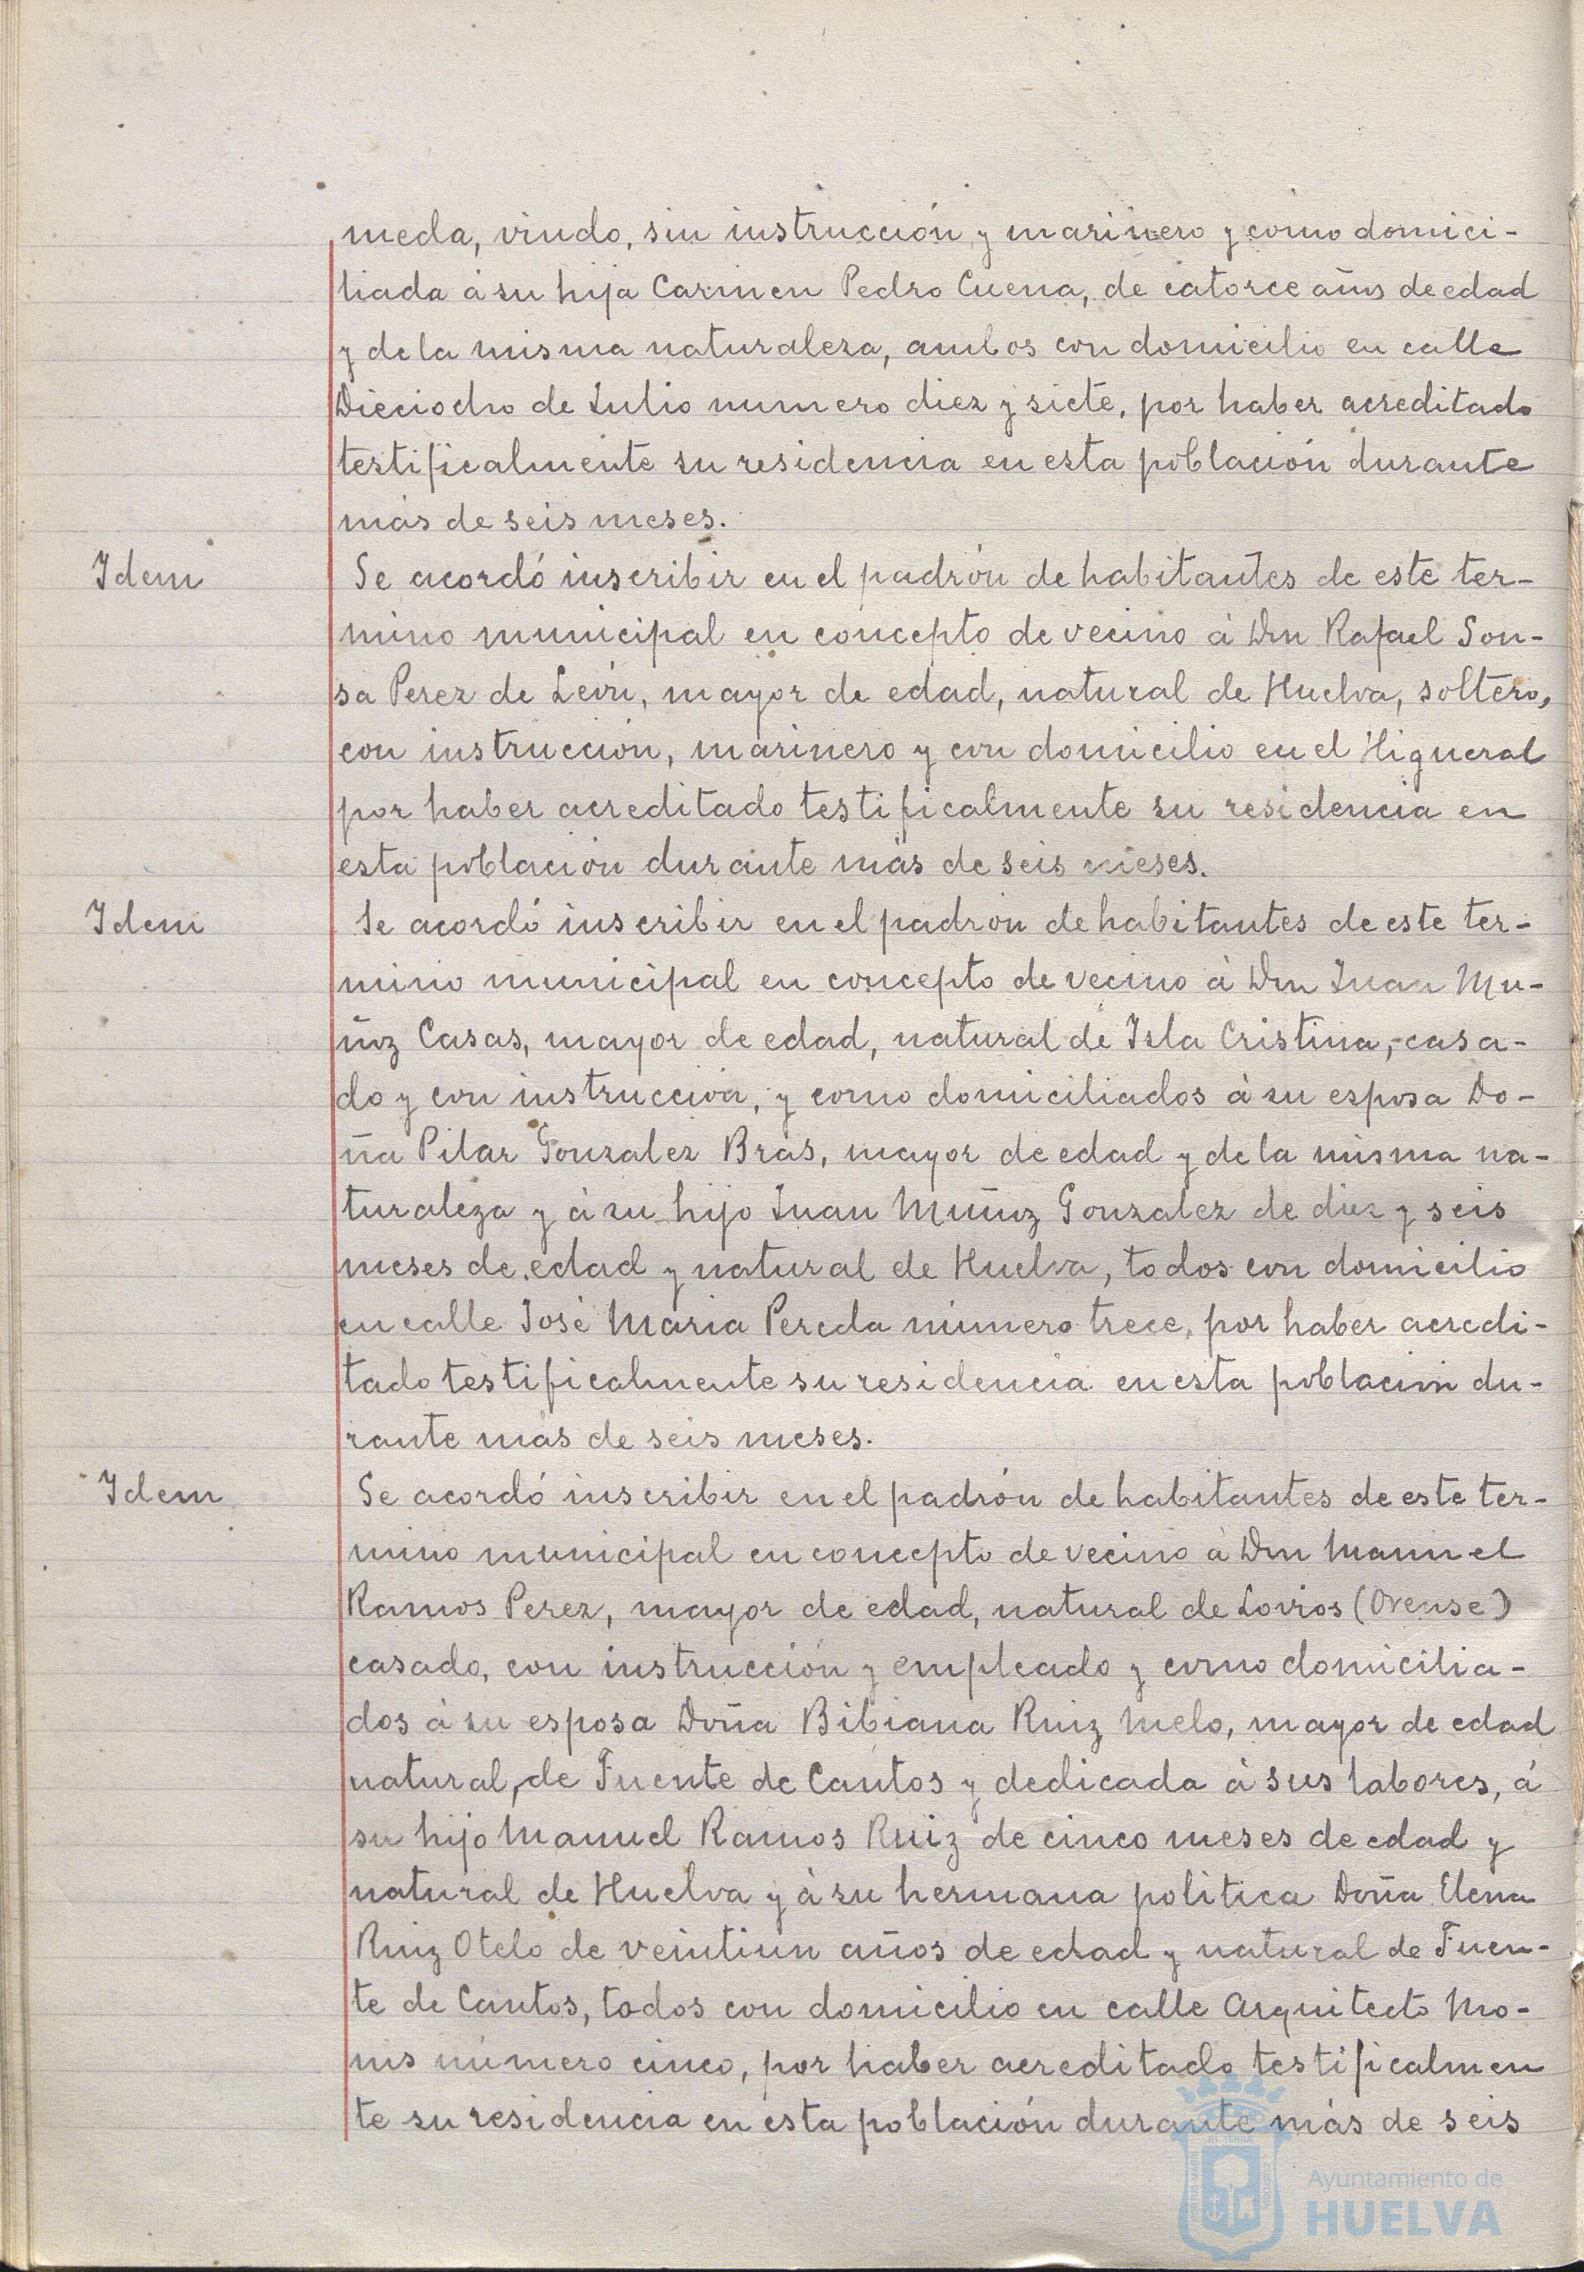 meda, viudo, sin instrucción y marinero y como domici-
liada á su hija Carmen Pedro Cuena, de catorce años de edad
y de la misma naturaleza, ambos con domicilio en calle
Dieciocho de Julio numero diez y siete, por haber acreditado
testificalmente su residencia en esta población durante
más de seis meses.
Idem
Se acordó inscribir en el padrón de habitantes de este ter-
mino municipal en concepto de vecino á Don Rafael Sou-
sa Perez de León, mayor de edad, natural de Huelva, soltero,
con instrucción, marinero y con domicilio en el Higueral
por haber acreditado testificalmente su residencia en
esta población durante más de seis meses.
Idem
Se acordó inscribir en el padrón de habitantes de este ter-
mino municipal en concepto de vecino á Don Juan Mu-
ñoz Casas, mayor de edad, natural de Isla Cristina, casa-
do y con instrucción, y como domiciliados á su esposa Do-
ña Pilar Gonzalez Bras, mayor de edad y de la misma na-
turaleza y á su hijo Juan Muñoz Gonzalez de diez y seis
meses de edad y natural de Huelva, todos con domicilio
en calle José Maria Pereda número trece, por haber acredi-
tado testificalmente su residencia en esta población du-
rante más de seis meses.
Idem
Se acordó inscribir en el padrón de habitantes de este ter-
mino municipal en concepto de vecino á Don Manuel
Ramos Perez, mayor de edad, natural de Lovios (Orense)
casado, con instrucción y empleado y como domicilia-
dos á su esposa Doña Bibiana Ruiz Melo, mayor de edad
natural, de Fuente de Cantos y dedicada á sus labores, á
su hijo Manuel Ramos Ruiz de cinco meses de edad y
natural de Huelva y á su hermana politica Doña Elena
Ruiz Otelo de veintiun años de edad y natural de Fuen-
te de Cantos, todos con domicilio en calle Arquitecto Mo-
nis número cinco, por haber acreditado testificalmen
te su residencia en esta población durante más de seis
Ayuntamiento de
HUELVA